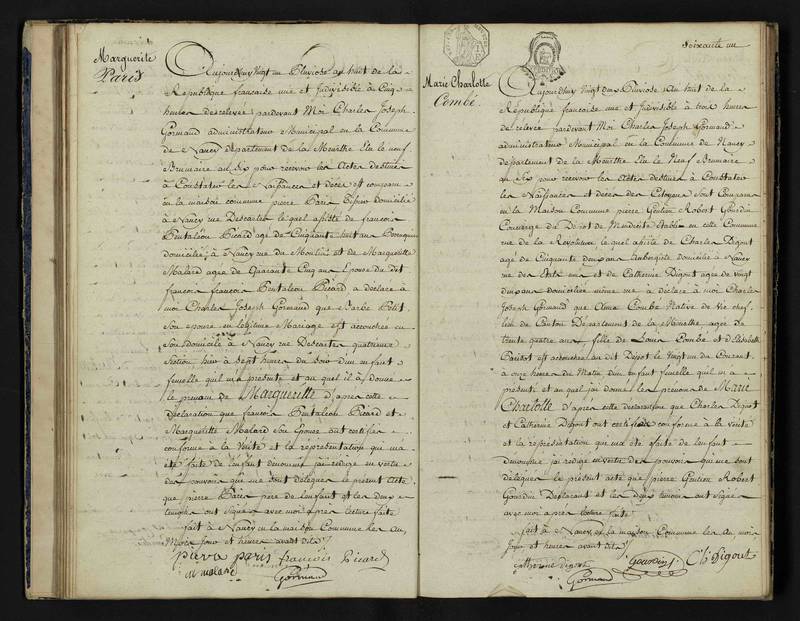 Marguerite
Paris
Aujourd'huy vingt un Pluviose an huit de la
République française une et Indivisible à Cinq
heures de relevée pardevant Moi Charles Joseph
Gormand administrateur Municipal en la Commune
de Nancy département de la Meurthe Elu le neuf
Brumaire an Six pour recevoir les Actes destinés
à Constater les Naissances et décès est comparu
en la maison commune pierre Paris domicilié
à Nancy rue Descartes lequel assisté de françois
Pentaléon Picard agé de Cinquante huit ans
domicilié à Nancy rue du Moulin et de Marguerite
Malard agée de Quarante Cinq ans Epouse du dit
françois Pentaléon Picard a déclaré à
moi Charles Joseph Gormand que Barbe Petit
Son épouse en légitime Mariage est accouchée en
Son domicile à Nancy rue Descartes quatrieme
Section hier à Sept heures du Soir d'un enfant
femelle qu'il m'a présenté et au quel il à donné
le prenom de Marguerite d'après cette
déclaration que françois Pentaléon Picard et
Marguerite Malard Son Epouse ont certifiée
conforme à la Vérité et la représentation qui m'a
été faite de l'enfant dénommé j'ai rédigé en vertu
des pouvoirs qui me sont délégués le présent Acte
que pierre Paris père de l'enfant et les deux
temoins ont signé avec moi après lecture faite
fait à Nancy en la maison Commune les An,
Mois jour et heures avant dits
pierre paris françois Picard
m malard
Gormand
Soixante un
Marie Charlotte
Combé.
Aujourd'huy vingt deux Pluviose l'an huit de la
République française une et Indivisible à trois heures
de relevée pardevant Moi Charles Joseph Gormand
administrateur Municipal en la Commune de Nancy
département de la Meurthe Elu le Neuf Brumaire
an Six pour recevoir les Actes destinés à Constater
les Naissances et décès des Citoyens Sont Comparu
en la Maison Commune pierre Gentien Robert Gourdin
Concierge du Dépot de Mendicité établi en cette Commune
rue de la Révolution lequel assisté de Charles Digout
agé de Cinquante deux ans domicilié à Nancy
rue des Etats et de Catherine Digout agée de vingt
deux ans domiciliée même rue à déclaré à moi Charles
Joseph Gormand que Anna Combé Native de Vic chef
lieu de Canton Département de la Meurthe agée de
trente quatre ans fille de Louis Combé et d'Elisabeth
Parisot est accouchée au dit Dépot le vingt un du Courant
à onze heures du Matin d'un Enfant femelle qu'il m'a
présenté et au quel j'ai donné les prenoms de Marie
Charlotte d'après cette déclaration que Charles Digout
et Catherine Digout ont certifiée conforme à la vérité
et la représentation qui m'a été faite de l'enfant
dénommé j'ai rédigé en vertu des pouvoirs qui me sont
délégués le présent acte que pierre Gentien Robert
Gourdin Déclarant et les deux témoins ont signé
avec moi après lecture faite
fait à Nancy en la maison Commune les An mois
jour et heures avant dits
Catherine Digout Gourdin Ch Digout
Gormand